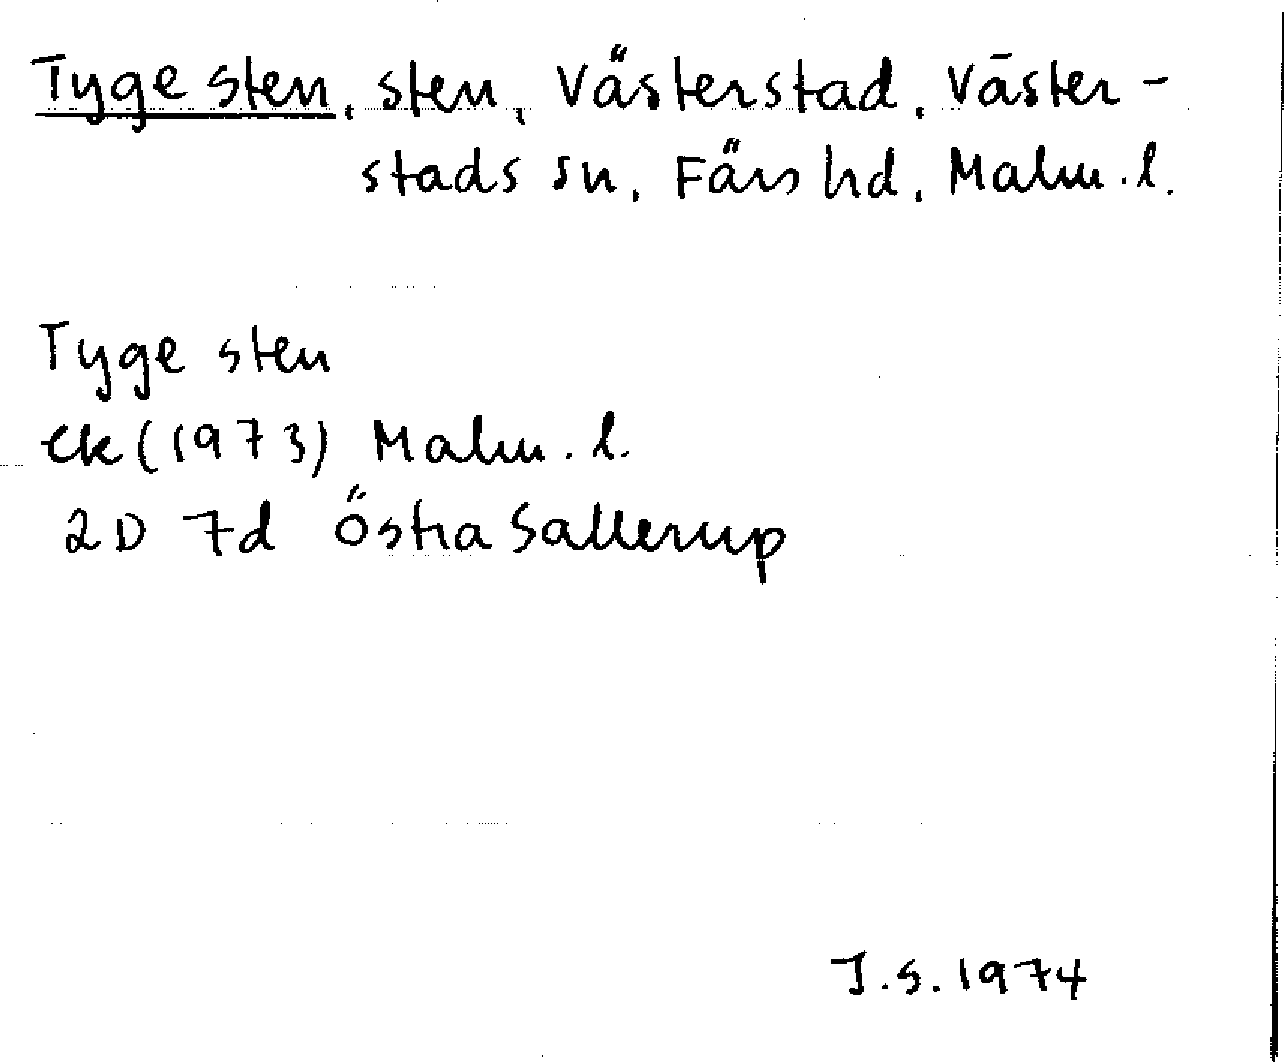 Tyge sten, sten, Västerstad, Väster-
stads sn, Färs hd, Malm. l.
Tyge sten
ek (1973) Malm. l.
2D 7d Östra Sallerup
J.S. 1974